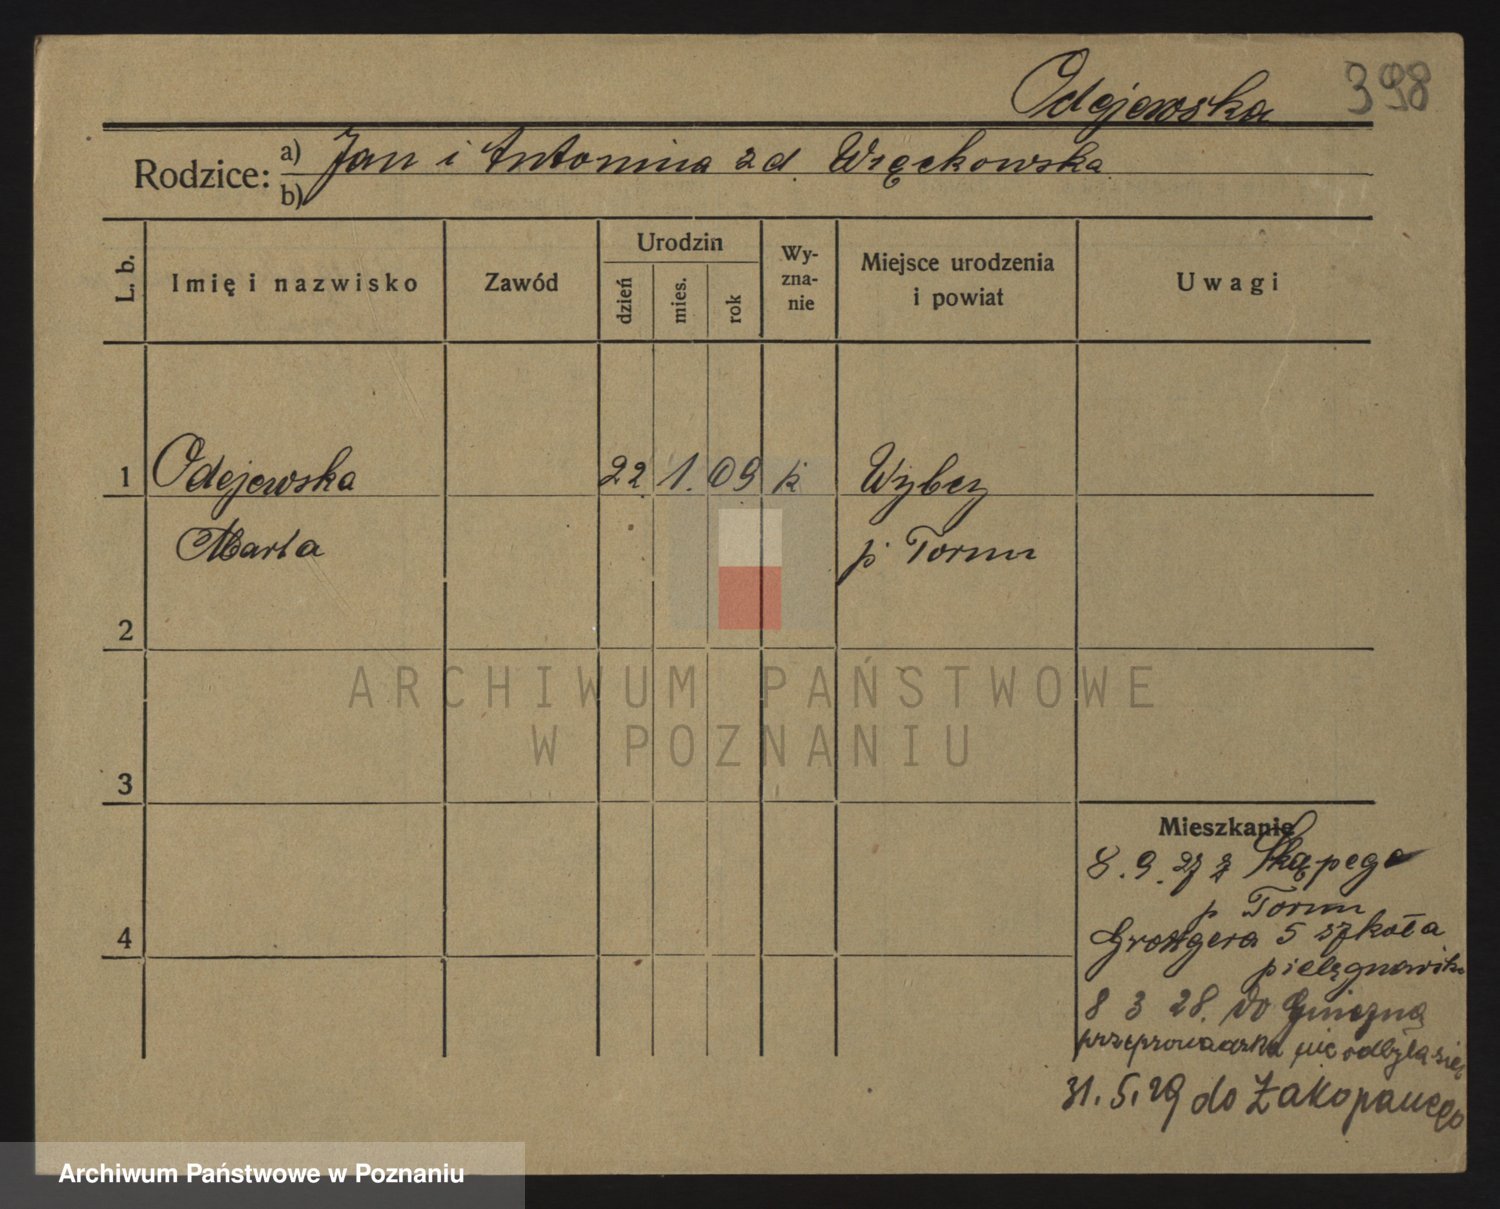 Odejewska 398
Rodzice: a) Jan i Antonina z d. Więckowska
b)
L. b.
Imię i nazwisko
Zawód
Urodzin
dzień
mies.
rok
Wy-
zna-
nie
Miejsce urodzenia
i powiat
Uwagi
1 Odejewska 22. 1. 09 k Wybcz
Marta p. Toruń
2
3
4
ARCHIWUM PAŃSTWOWE
W POZNANIU
Mieszkanie
8. 9. 27 z Skąpego
p Toruń
Grottgera 5 szkoła
pielęgniarek
8 3 28. do Gniezna
przeprowadzka nie odbyła się
31. 5. 29 do Zakopanego
Archiwum Państwowe w Poznaniu